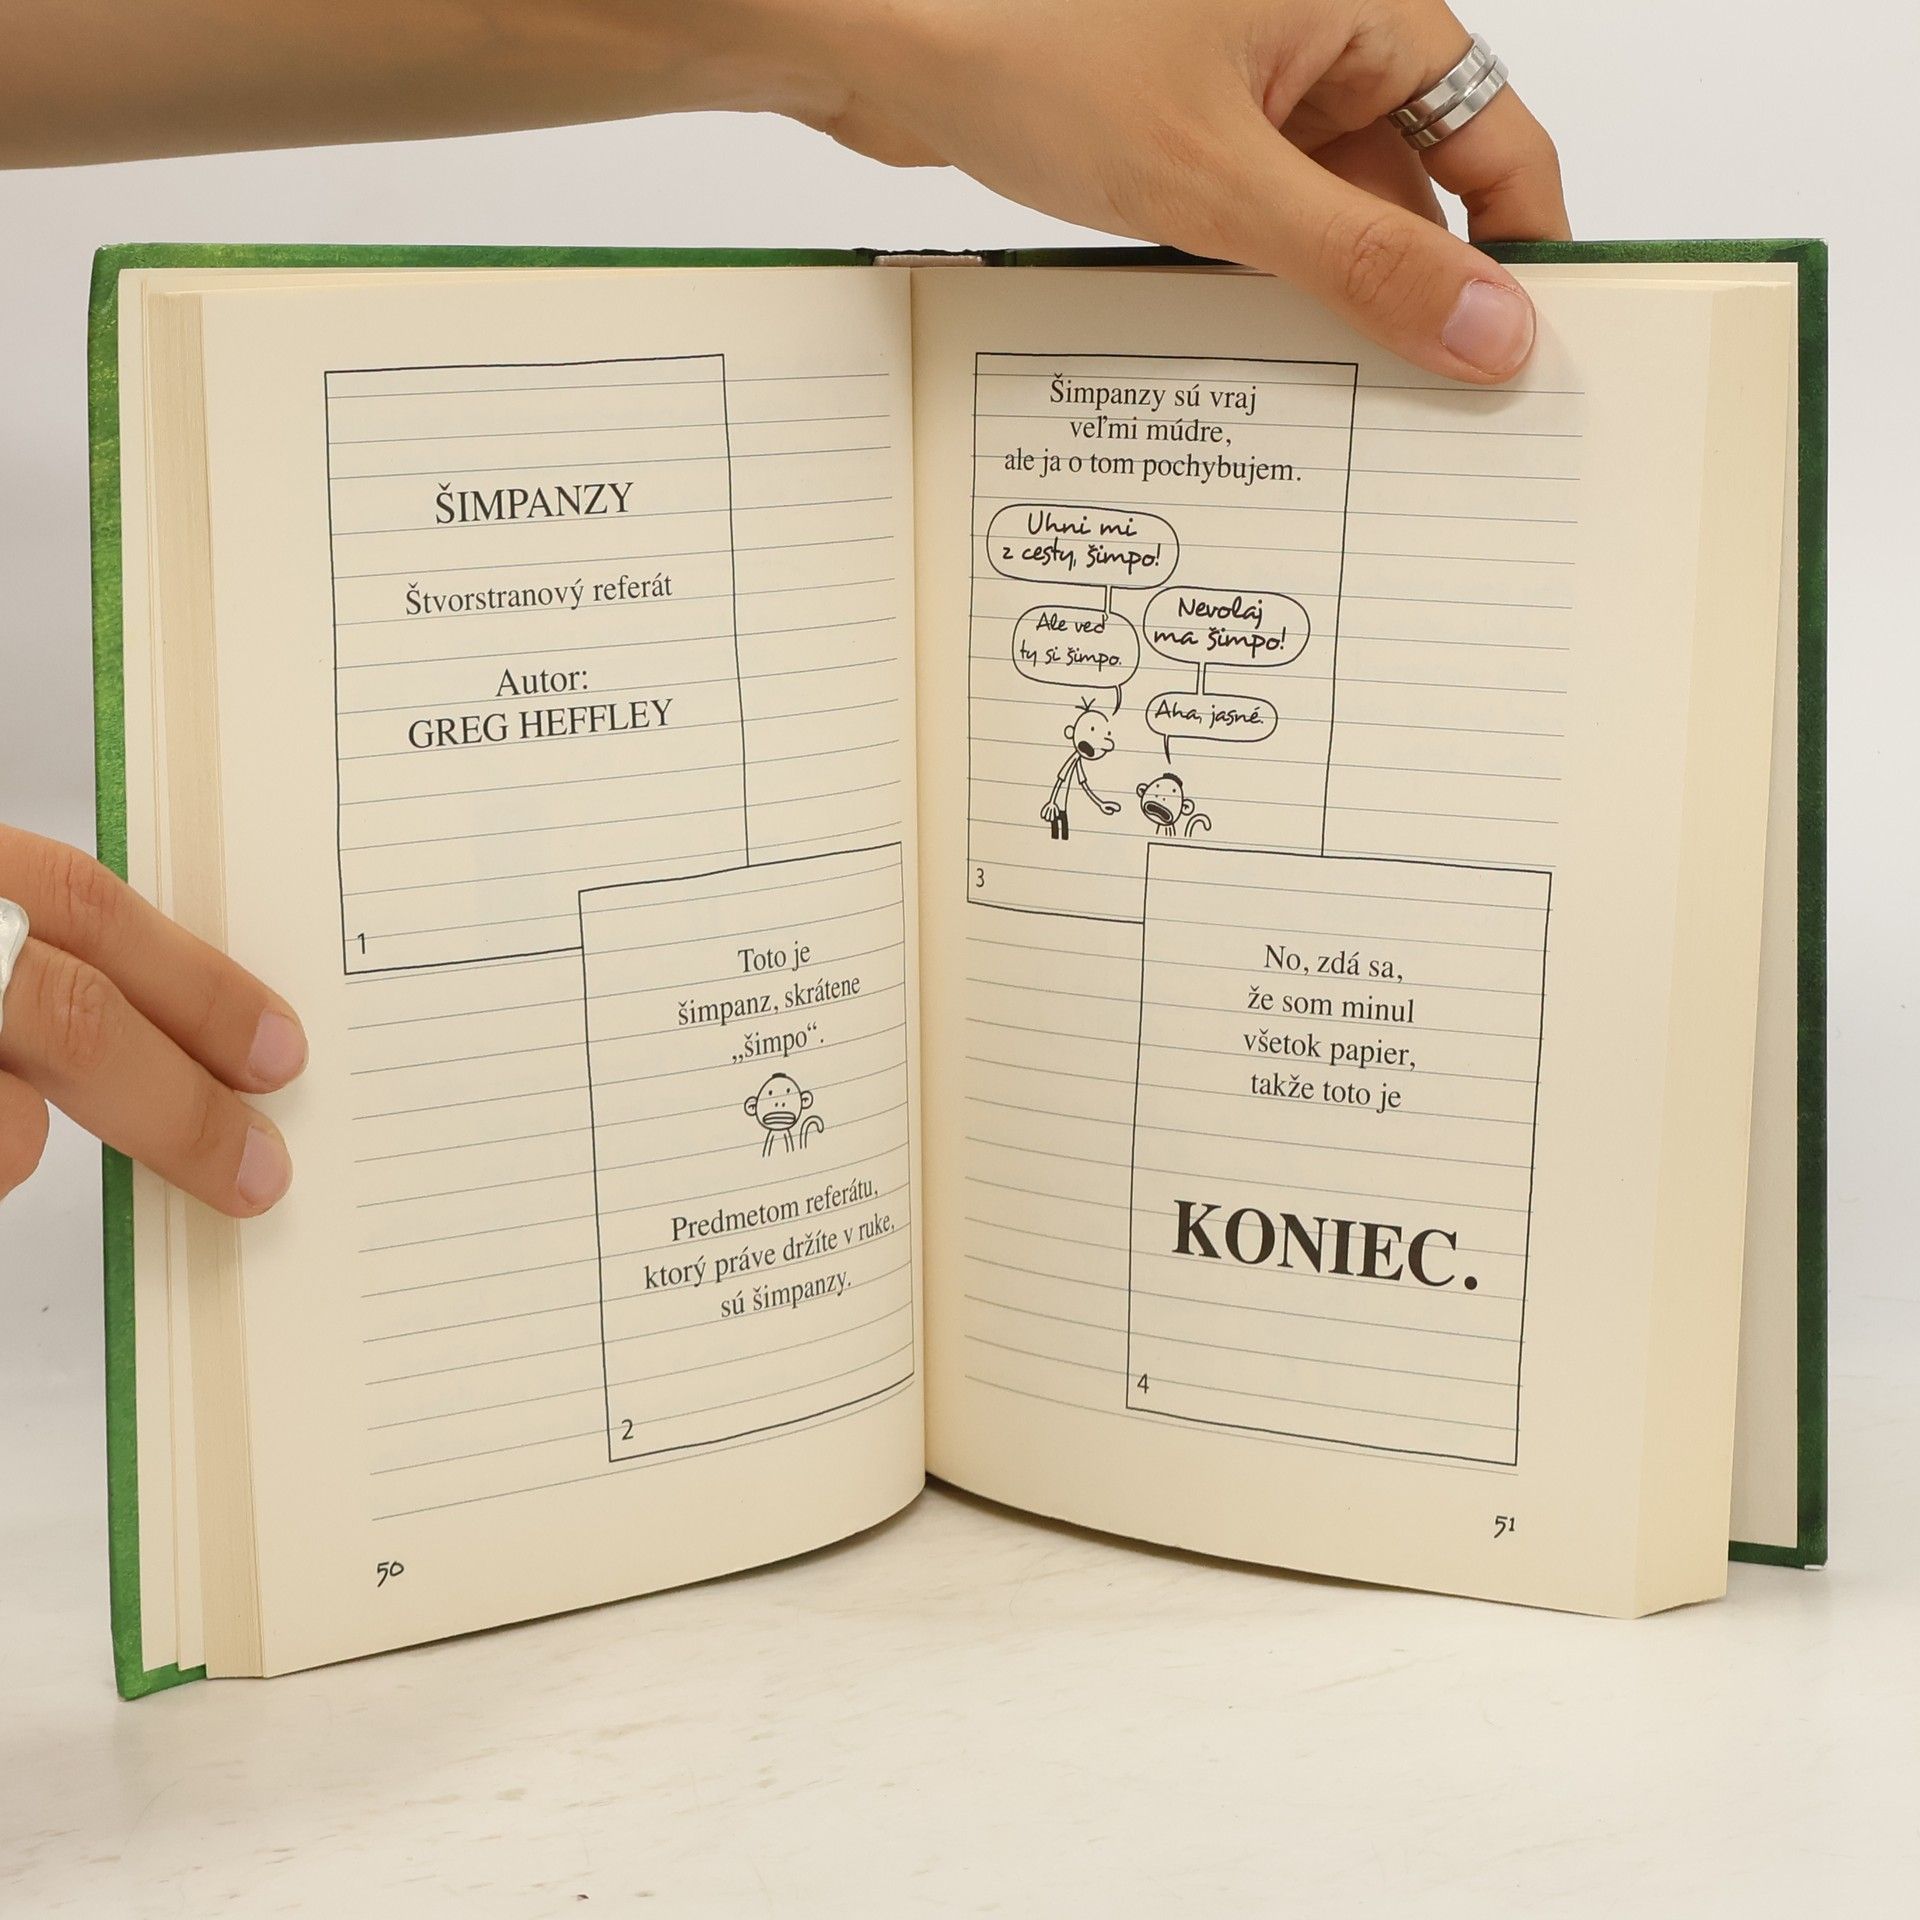 ŠIMPANZY
Štvorstranový referát
Autor:
GREG HEFFLEY
1
Toto je
šimpanz, skrátene
„šimpo“.
Predmetom referátu,
ktorý práve držíte v ruke,
sú šimpanzy.
2
50
Šimpanzy sú vraj
veľmi múdre,
ale ja o tom pochybujem.
Uhni mi
z cesty, šimpo!
Nevolaj
ma šimpo!
Ale veď
ty si šimpo.
Aha, jasné.
3
No, zdá sa,
že som minul
všetok papier,
takže toto je
KONIEC.
4
51